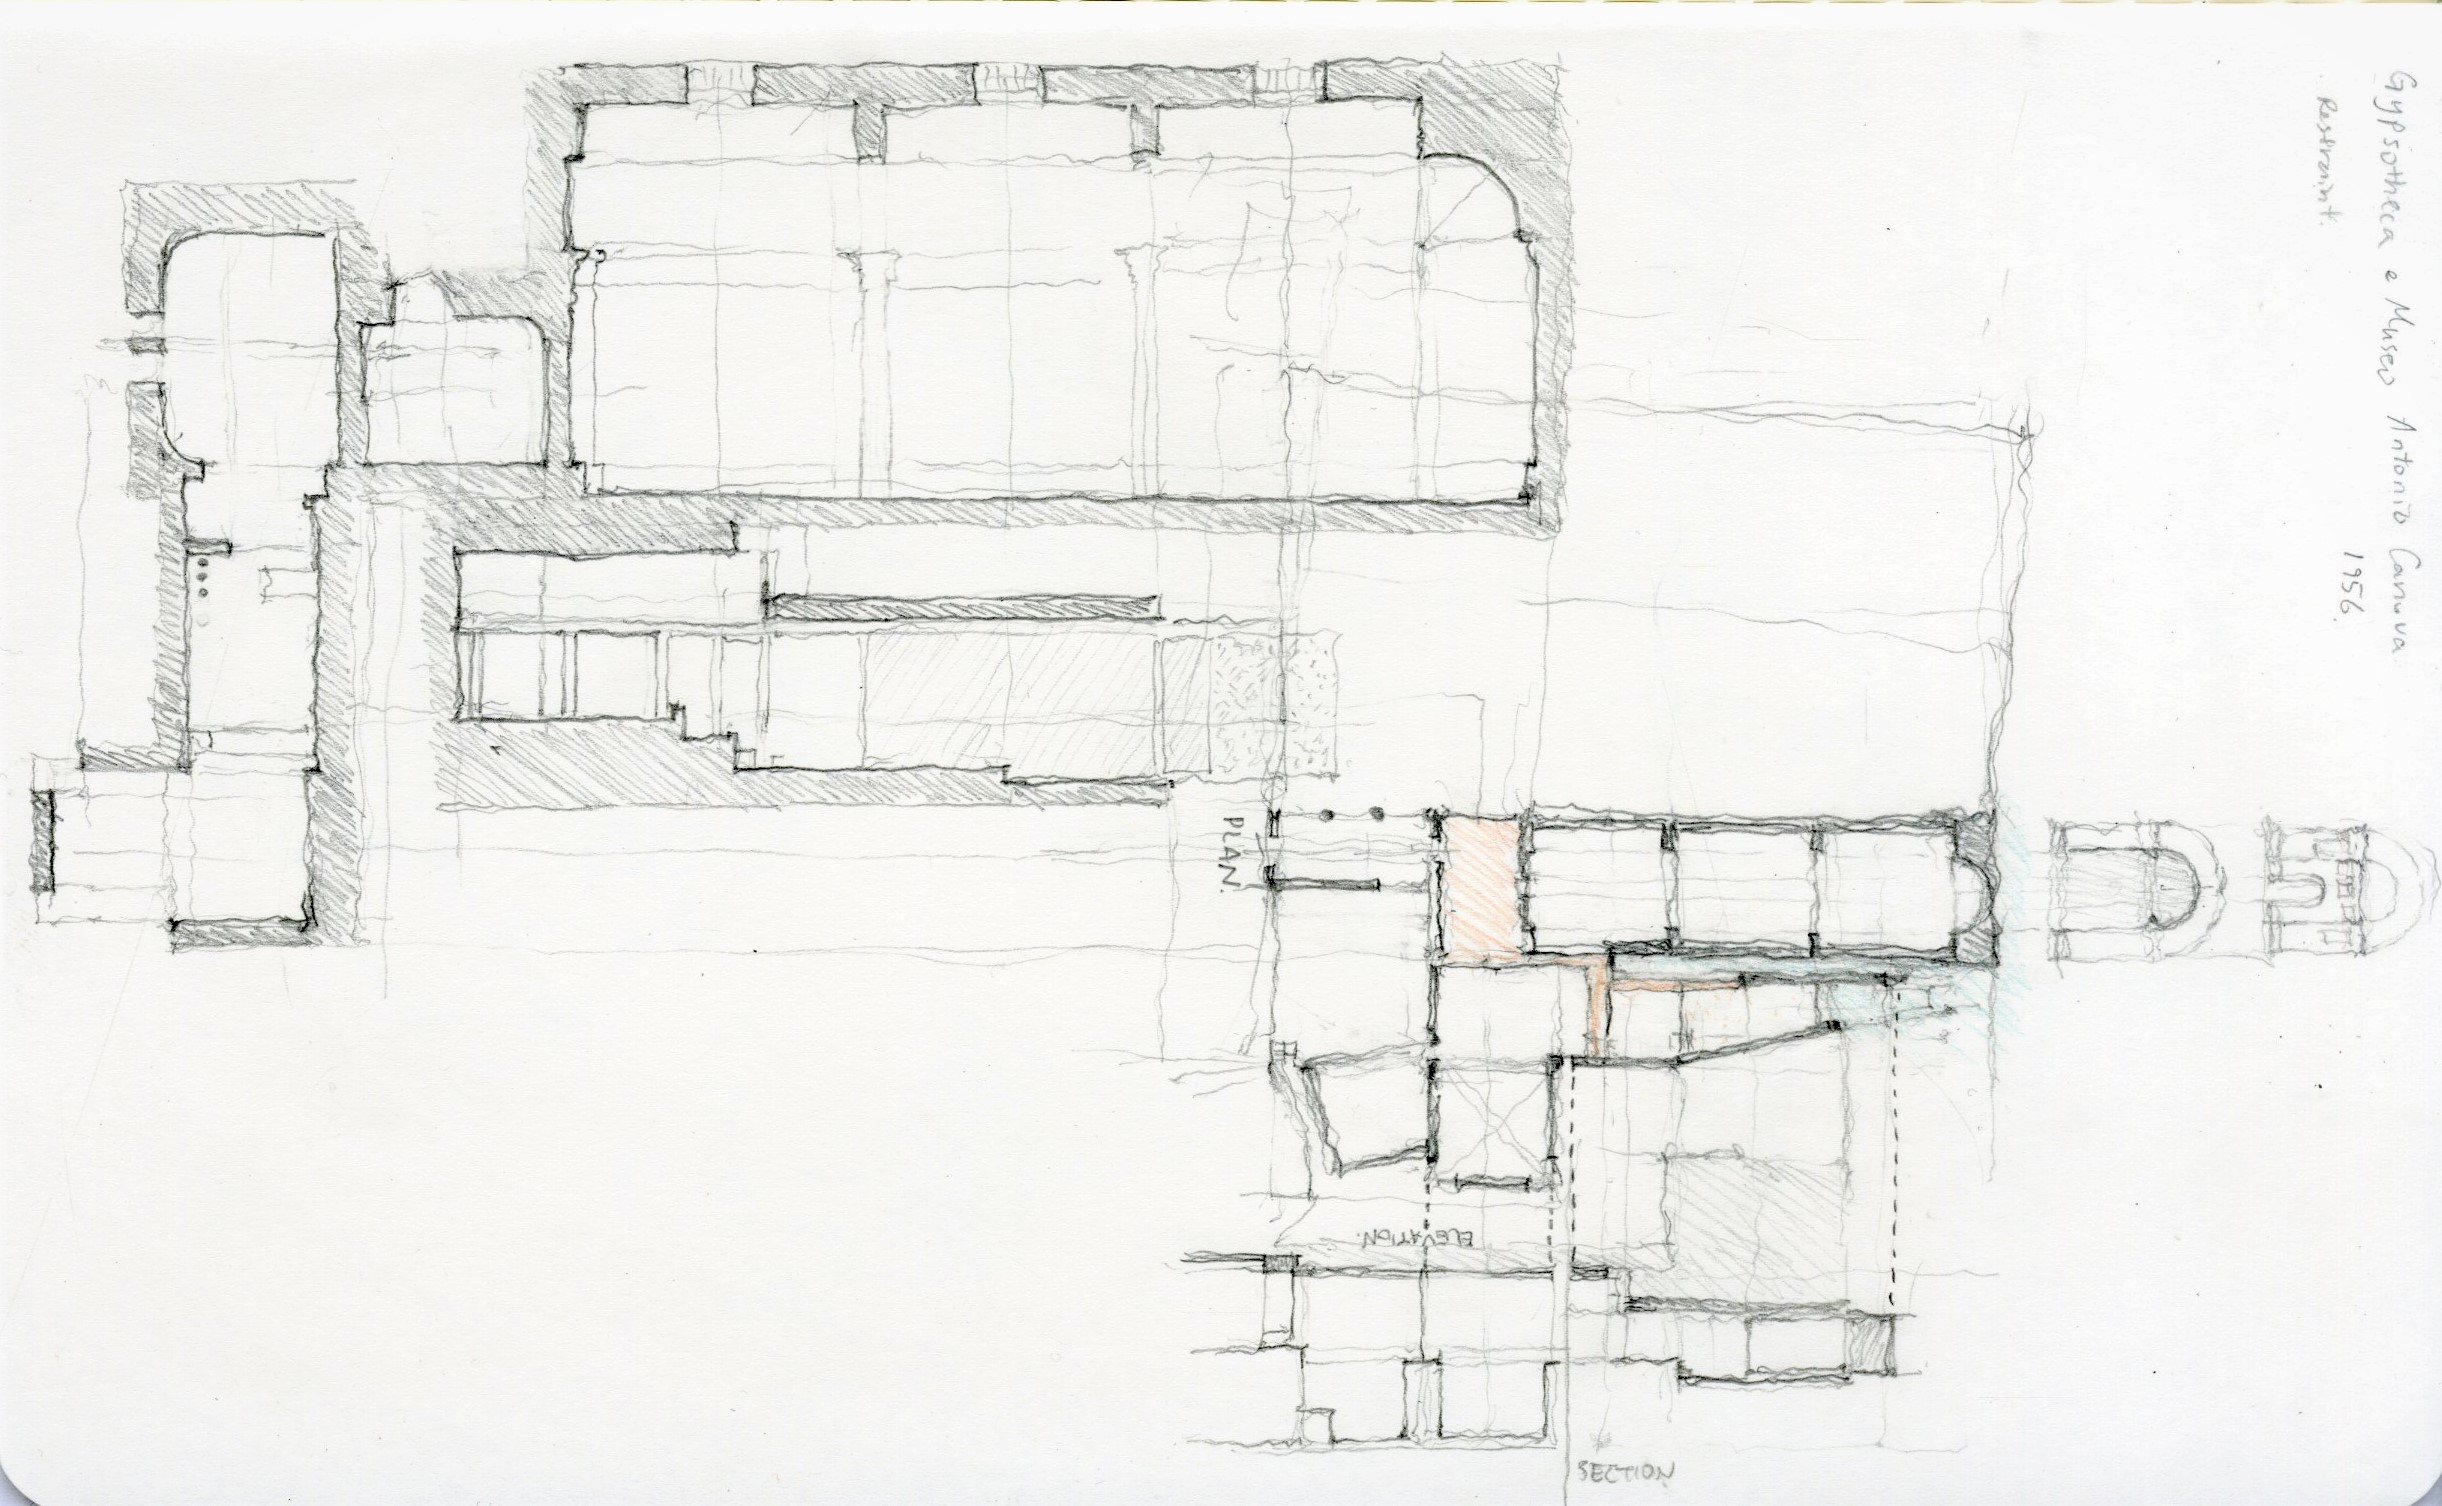 Gypsotheca e Museo Antonio Canova.
Restraint.
1956.
PLAN.
ELEVATION.
SECTION